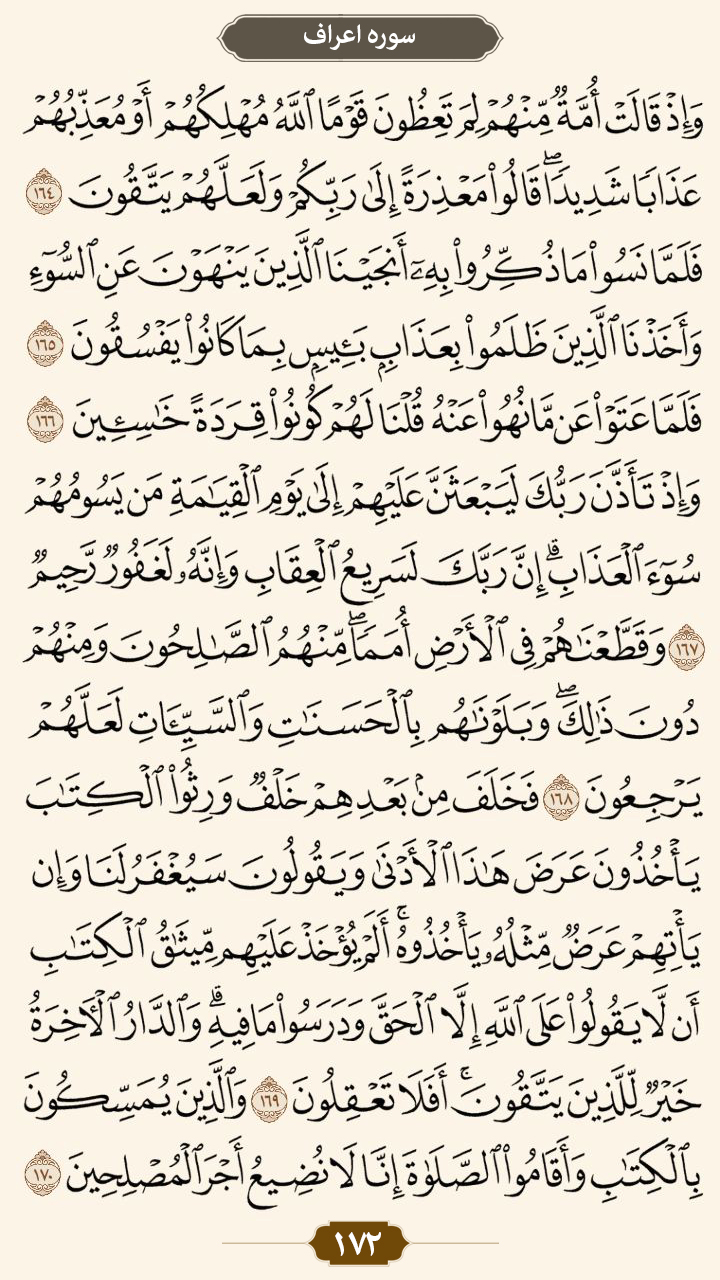 سوره اعراف
وَإِذْ قَالَتْ أُمَّةٌ مِّنْهُمْ لِمَ تَعِظُونَ قَوْمًا ٱللَّهُ مُهْلِكُهُمْ أَوْ مُعَذِّبُهُمْ
عَذَابًا شَدِيدًاۖ قَالُوا۟ مَعْذِرَةً إِلَىٰ رَبِّكُمْ وَلَعَلَّهُمْ يَتَّقُونَ ١٦٤
فَلَمَّا نَسُوا۟ مَا ذُكِّرُوا۟ بِهِۦٓ أَنجَيْنَا ٱلَّذِينَ يَنْهَوْنَ عَنِ ٱلسُّوٓءِ
وَأَخَذْنَا ٱلَّذِينَ ظَلَمُوا۟ بِعَذَابٍۭ بَـِٔيسٍۭ بِمَا كَانُوا۟ يَفْسُقُونَ ١٦٥
فَلَمَّا عَتَوْا۟ عَن مَّا نُهُوا۟ عَنْهُ قُلْنَا لَهُمْ كُونُوا۟ قِرَدَةً خَـٰسِـِٔينَ ١٦٦
وَإِذْ تَأَذَّنَ رَبُّكَ لَيَبْعَثَنَّ عَلَيْهِمْ إِلَىٰ يَوْمِ ٱلْقِيَـٰمَةِ مَن يَسُومُهُمْ
سُوٓءَ ٱلْعَذَابِۗ إِنَّ رَبَّكَ لَسَرِيعُ ٱلْعِقَابِ وَإِنَّهُۥ لَغَفُورٌ رَّحِيمٌ
١٦٧ وَقَطَّعْنَـٰهُمْ فِى ٱلْأَرْضِ أُمَمًاۖ مِّنْهُمُ ٱلصَّـٰلِحُونَ وَمِنْهُمْ
دُونَ ذَٰلِكَۖ وَبَلَوْنَـٰهُم بِٱلْحَسَنَـٰتِ وَٱلسَّيِّـَٔاتِ لَعَلَّهُمْ
يَرْجِعُونَ ١٦٨ فَخَلَفَ مِنۢ بَعْدِهِمْ خَلْفٌ وَرِثُوا۟ ٱلْكِتَـٰبَ
يَأْخُذُونَ عَرَضَ هَـٰذَا ٱلْأَدْنَىٰ وَيَقُولُونَ سَيُغْفَرُ لَنَا وَإِن
يَأْتِهِمْ عَرَضٌ مِّثْلُهُۥ يَأْخُذُوهُۚ أَلَمْ يُؤْخَذْ عَلَيْهِم مِّيثَـٰقُ ٱلْكِتَـٰبِ
أَن لَّا يَقُولُوا۟ عَلَى ٱللَّهِ إِلَّا ٱلْحَقَّ وَدَرَسُوا۟ مَا فِيهِۗ وَٱلدَّارُ ٱلْـَٔاخِرَةُ
خَيْرٌ لِّلَّذِينَ يَتَّقُونَۚ أَفَلَا تَعْقِلُونَ ١٦٩ وَٱلَّذِينَ يُمَسِّكُونَ
بِٱلْكِتَـٰبِ وَأَقَامُوا۟ ٱلصَّلَوٰةَ إِنَّا لَا نُضِيعُ أَجْرَ ٱلْمُصْلِحِينَ ١٧٠
١٧٢